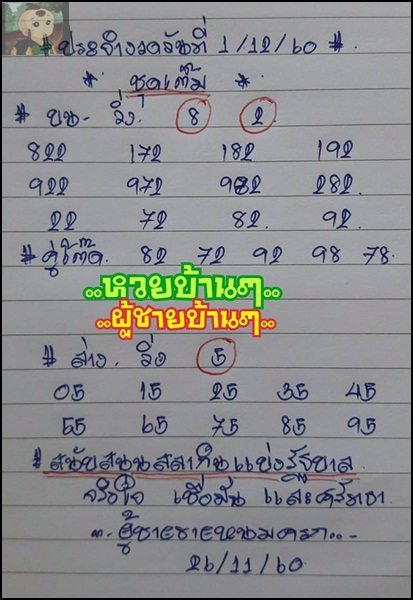 # ประจำงวดวันที่ 1/12/60 #
* ชุดเต็ม *
# บน - วิ่ง. 8 2
822 172 182 192
922 972 982 282.
22 72 82. 92.
# คู่โต๊ด. 82 72 92 98 78.
..หวยบ้านๆ..
..ผู้ชายบ้านๆ..
# ล่าง. วิ่ง 5
05 15 25 35 45
55 65 75 85 95
# สนับสนุนสลากกินแบ่งรัฐบาล.
จริงใจ เชื่อมั่น และศรัทธา
26/11/60.